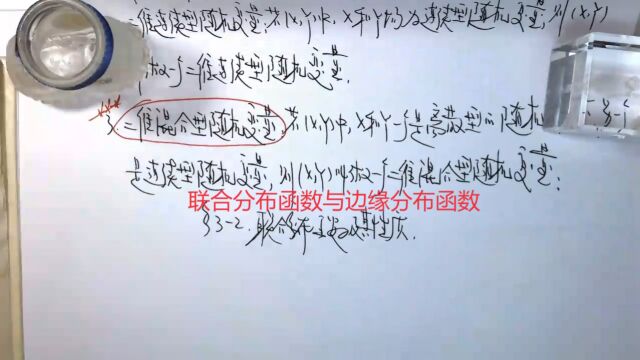 二维连续型随机变量: 若(X,Y)中, X和Y均为连续型随机变量, 则(X,Y)
叫做一个二维连续型随机变量.
3. 二维混合型随机变量: 若(X,Y)中, X和Y一个是离散型的随机 另一个
是连续型随机变量, 则(X,Y)叫做一个二维混合型随机变量;
联合分布函数与边缘分布函数
§3-2. 联合分布函数及其性质.